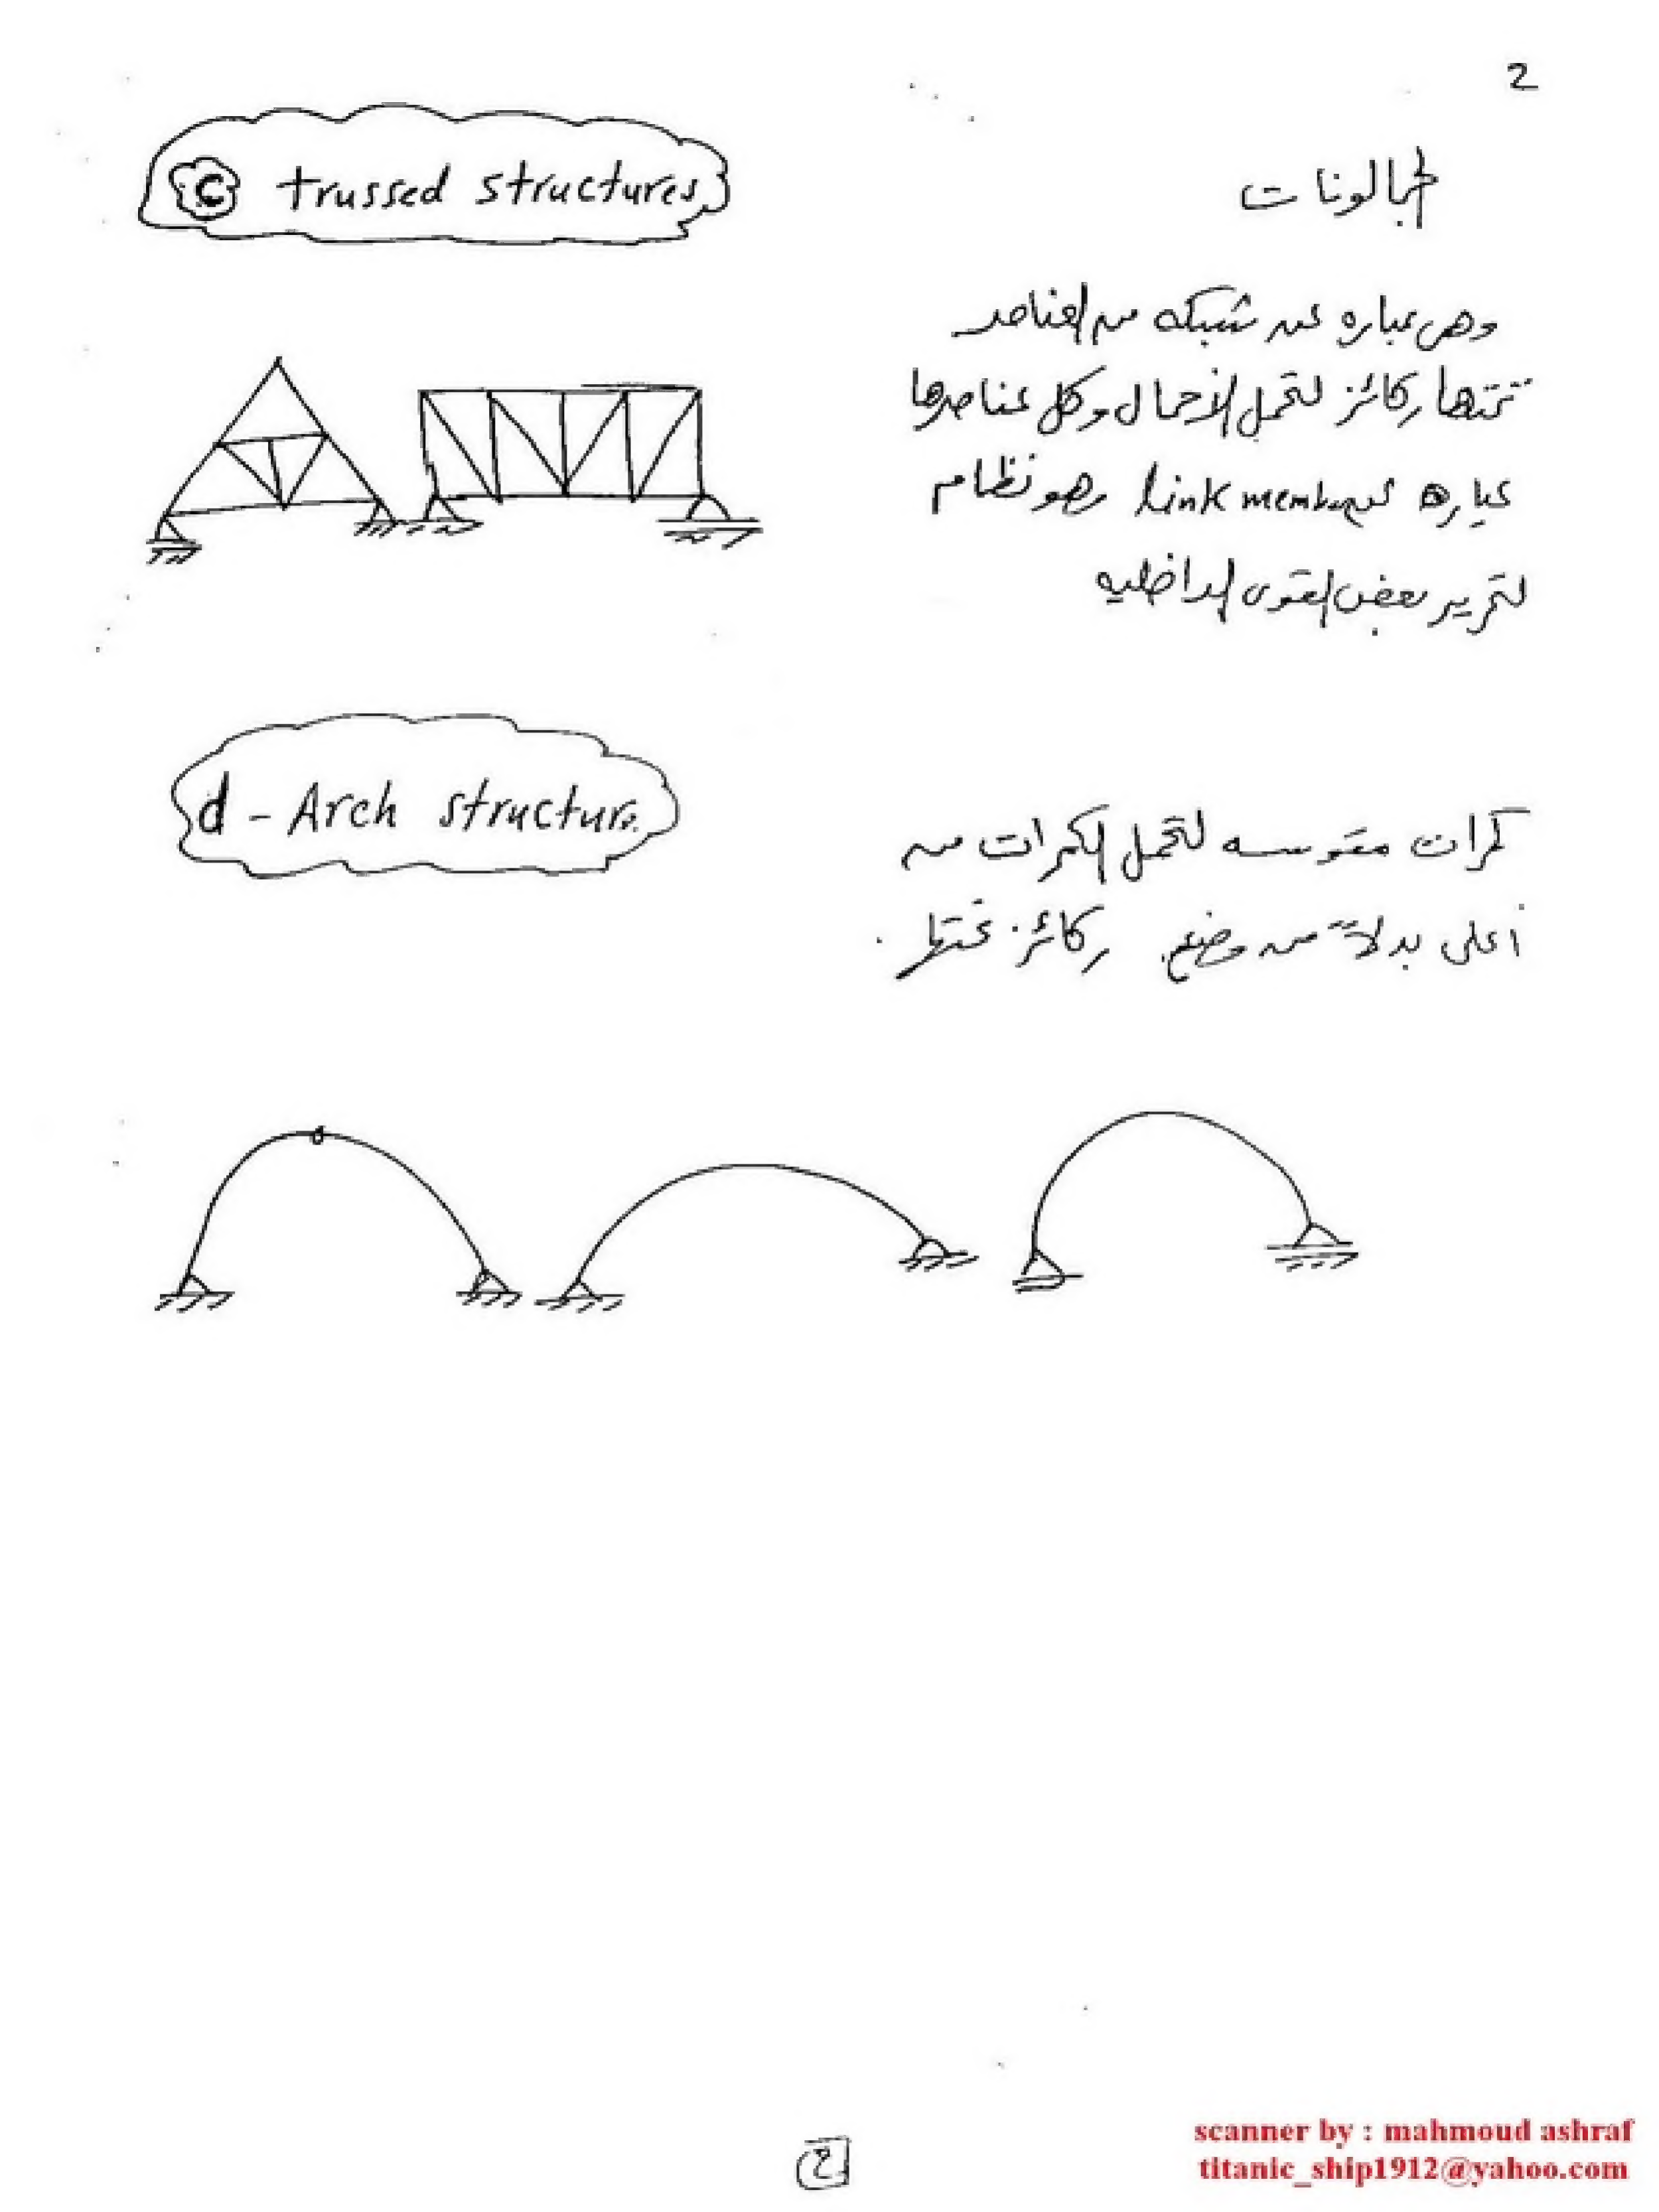 2
© trussed structures
الجمالونات
وهى عباره عن شبكه من العناصر
تحتها ركائز لتحمل الأحمال وكل عناصرها
عباره عن link member وهو نظام
لتمرير بعض القوى الداخليه
d - Arch structure
كمرات مقوسه لتحمل الكمرات من
أعلى بدلاً من وضع ركائز تحتها .
scanner by : mahmoud ashraf
titanic_ship1912@yahoo.com